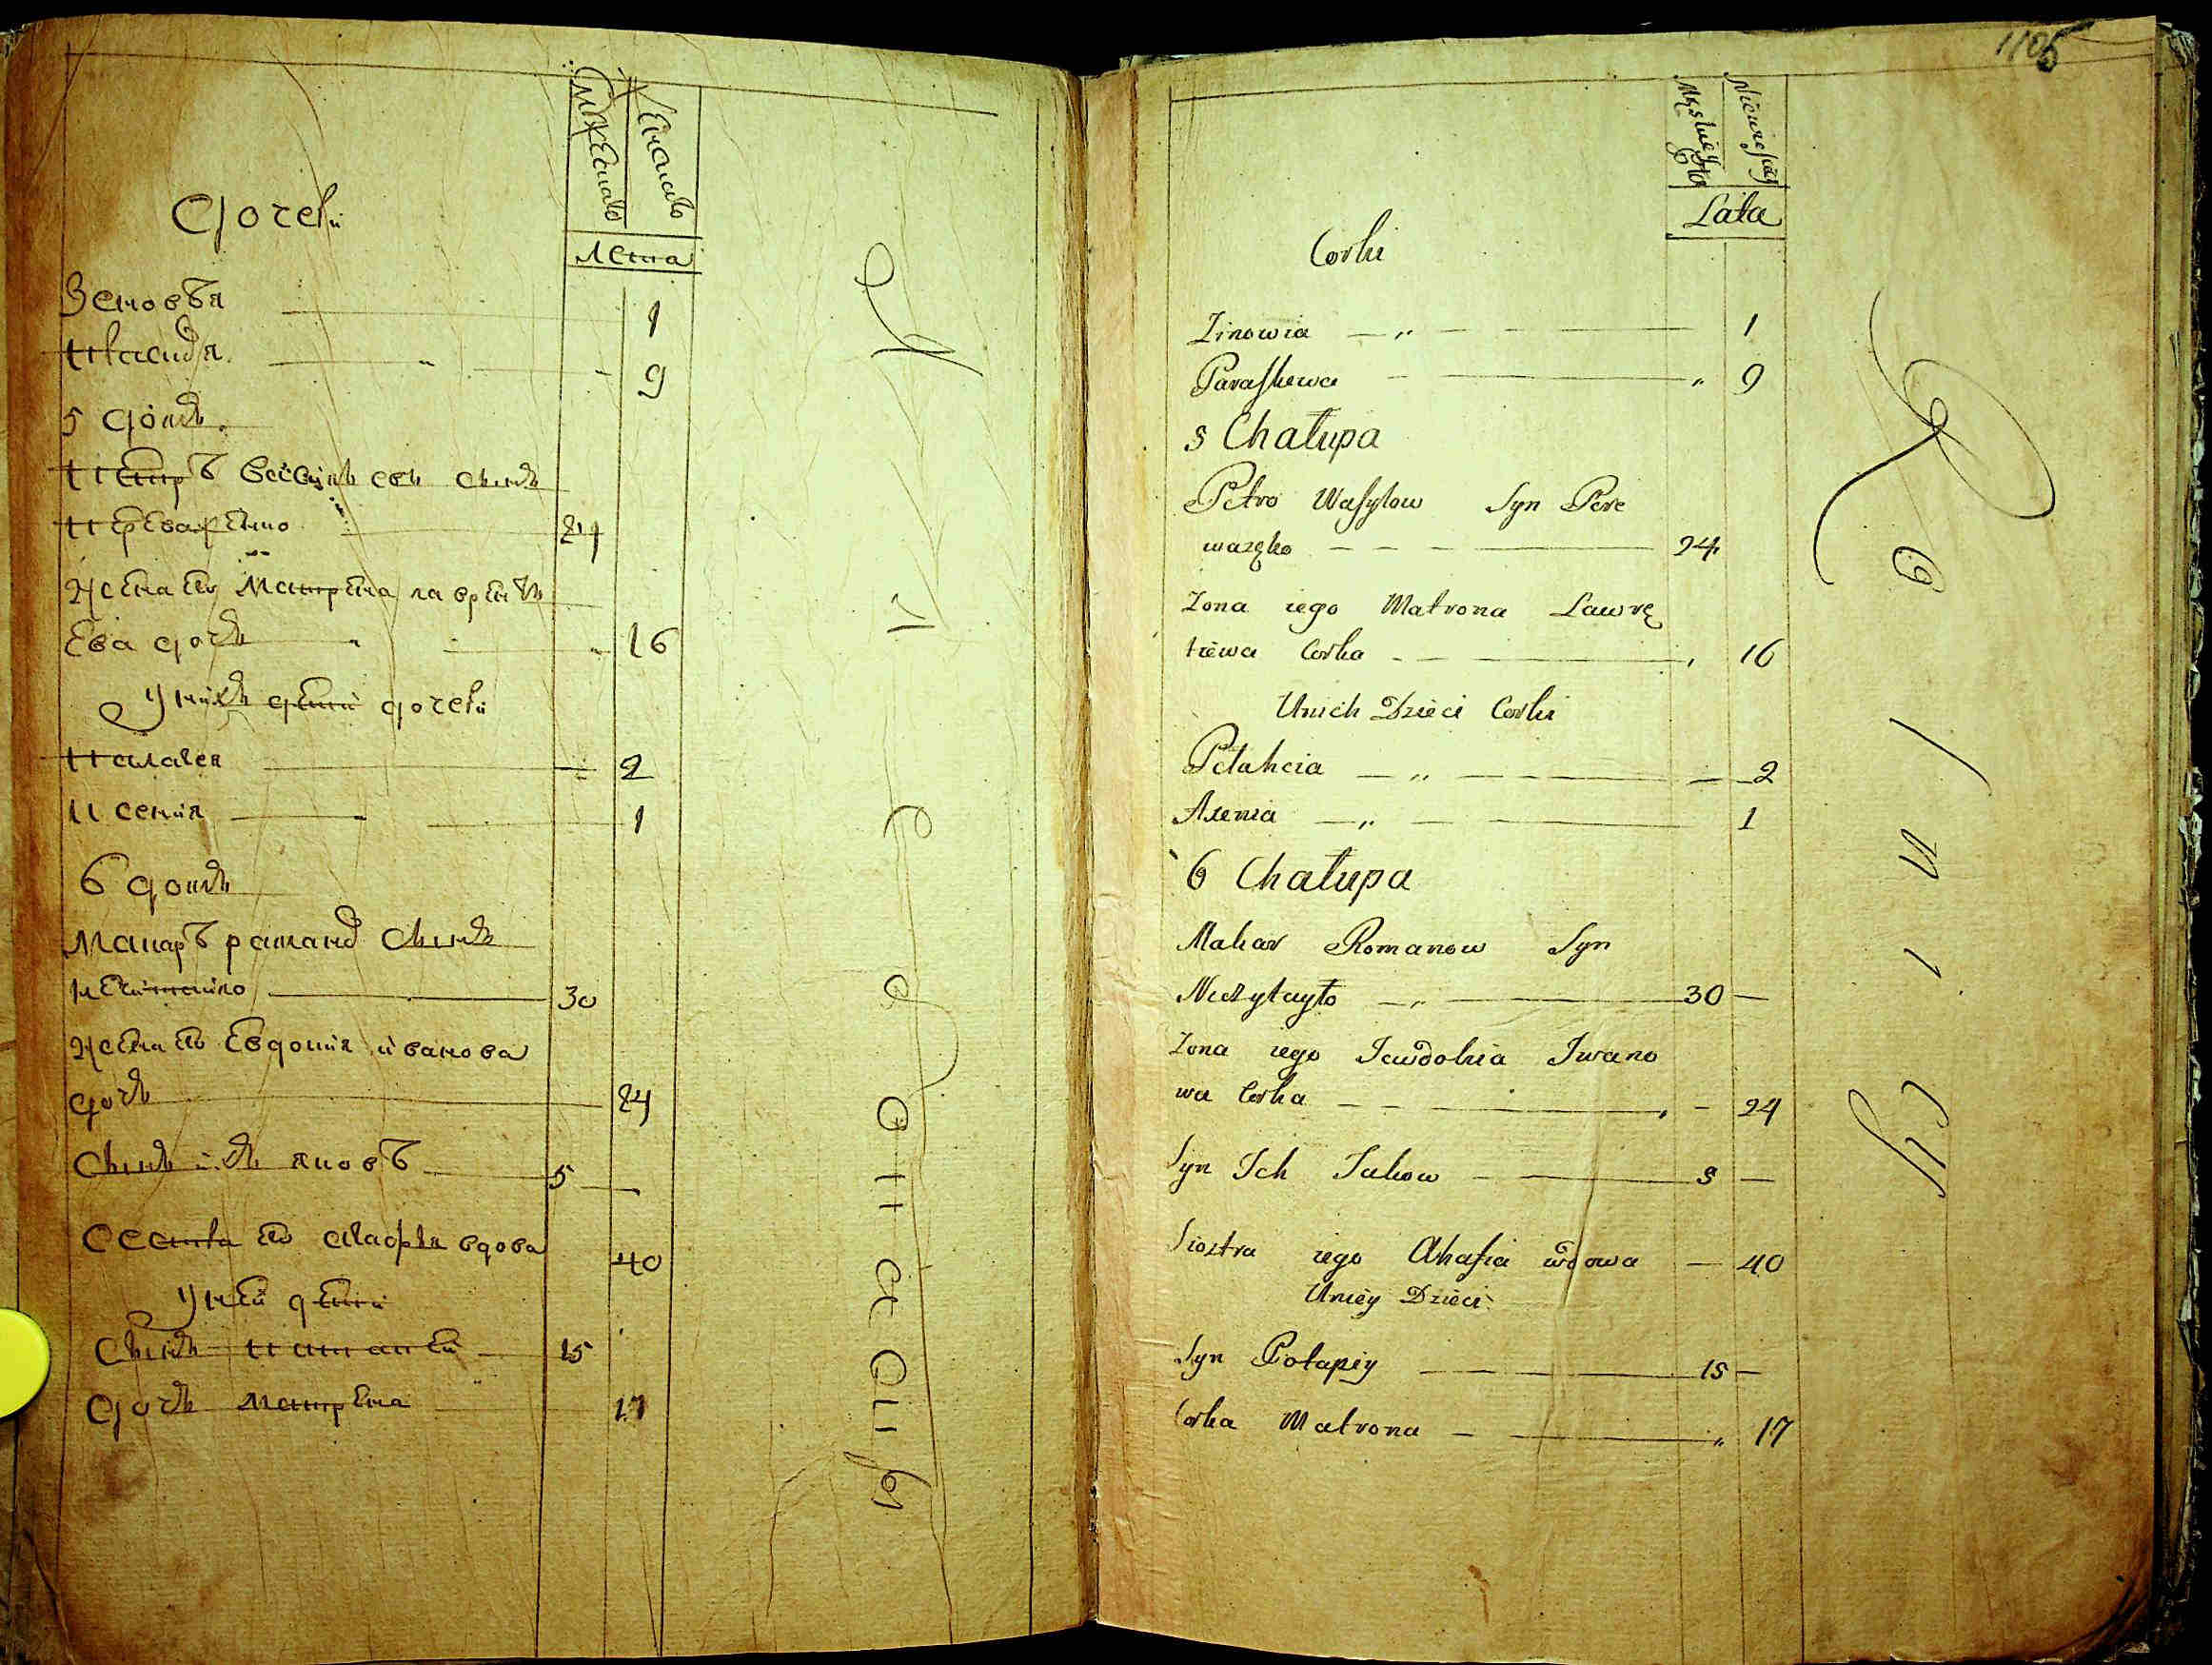 Мужеска
Женска
Лета
Дочекъ
Зеновѣя 1
9
5 Домъ
Петръ
24
Жена Его Матрена Лаврентѣ
Ева дочь 16
Унихъ дети дочеки
Палагея 2
Ксения 1
6 Домъ
Макаръ Раманов Сынъ
30
Жена Его Евдокия Иванова
дочь 24
Сынъ ихъ Яковъ 5
Сестра Его Агафья вдова 40
Уней дети
Сынъ Патапей 15
Дочь Матрена 17
1105
Męskiey Płci
Niewieściey
Lata
Corki
Zinowia 1
Paraskewa 9
5 Chałupa
Petro Wasylow Syn Pere
wazęko 24
Zona iego Matrona Lawrę
tiewa Corka 16
Unich Dzieci Corki
Pelahcia 2
Axenia 1
6 Chałupa
Makar Romanow Syn
Nieżytayło 30
Zona iego Jewdokia Iwano
wa Corka 24
Syn Ich Jakow 5
Siostra iego Ahafia wdowa 40
Uniey Dzieci
Syn Potapiy 15
Corka Matrona 17